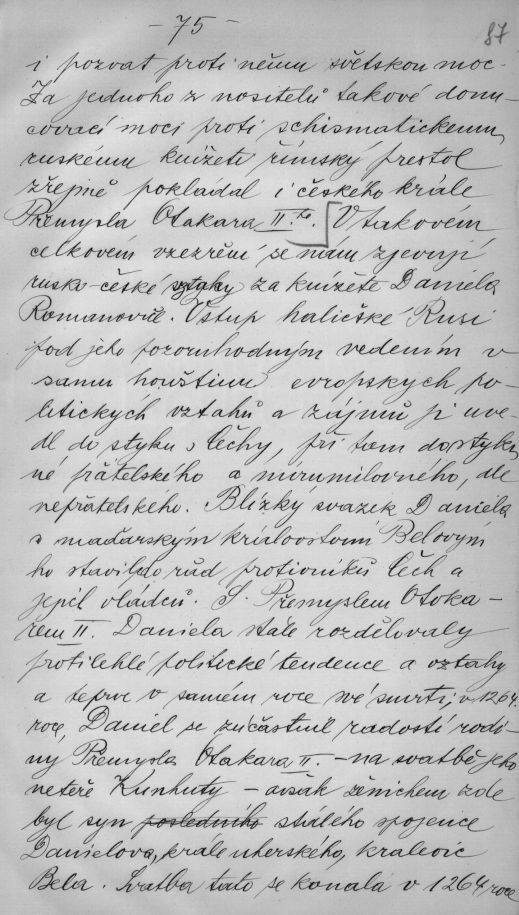 - 75 -
87
i pozvat proti němu světskou moc.
Za jednoho z nositelů takové donu-
covací moci proti schismatickemu
ruskému knížeti římský prestol
zřejmě pokládal i českého krále
Přemysla Otakara II.ho. V takovém
celkovém vzezrění se nám zjevují
rusko-české vztahy za knížete Daniela
Romanoviče. Vstup haličské Rusi
pod jeho pozoruhodným vedením v
samu houštinu evropskych po-
litických vztahů a zájmů ji uve-
dl do styku s Čechy, při tom do styku
né přátelského a mírumilovného, ale
nepřátelského. Blízký svazek Daniela
s maďarským královstvím Belovým
ho stavil do řad protivníků Čech a
jejich vládců. S Přemyslem Otoka-
rem II. Daniela stále rozdělovaly
protilehlé politické tendence a vztahy
a teprve v samém roce své smrti, v 1264.
roce, Daniel se zúčastnil radostí rodi-
ny Přemysla Otakara II. - na svatbě jeho
neteře Kunhuty - avšak ženichem zde
byl syn posledního stálého spojence
Danielova, krale uherského, kralevic
Bela. Svatba tato se konala v 1264 roce